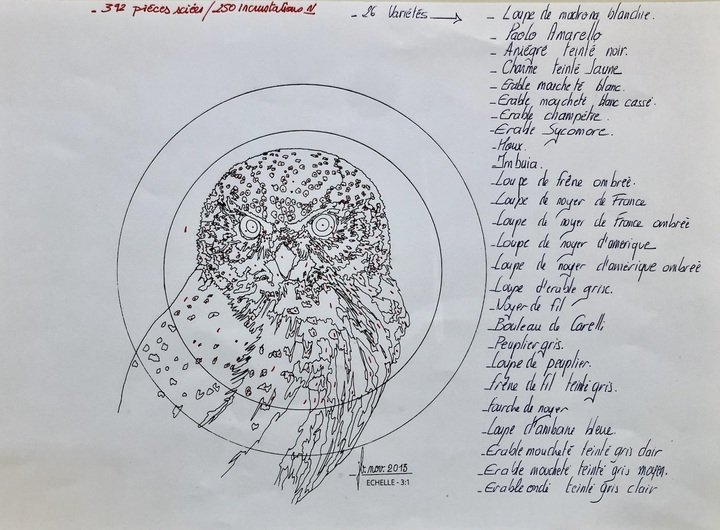 - 392 pièces sciées / 250 incrustations N
- 26 Variétés →
- Loupe de madrona blanchie.
- Paolo Amarello
- Aniégré teinté noir.
- Charme teinté Jaune
- Erable moucheté blanc.
- Erable moucheté blanc cassé.
- Erable champêtre.
- Erable Sycomore.
- Houx.
- Imbuia.
- Loupe de frêne ombréé.
- Loupe de noyer de France
- Loupe de noyer de France ombréé
- Loupe de noyer d'amérique
- Loupe de noyer d'amérique ombréé
- Loupe d'érable grise.
- Noyer de fil
- Bouleau de Carelli
- Peuplier gris.
- Loupe de peuplier.
- Frêne de fil teinté gris.
- fourche de noyer
- Loupe d'amboine bleue
- Erable moucheté teinté gris clair
- Erable moucheté teinté gris moyen.
- Erable ondé teinté gris clair
nov. 2015
ECHELLE - 3:1